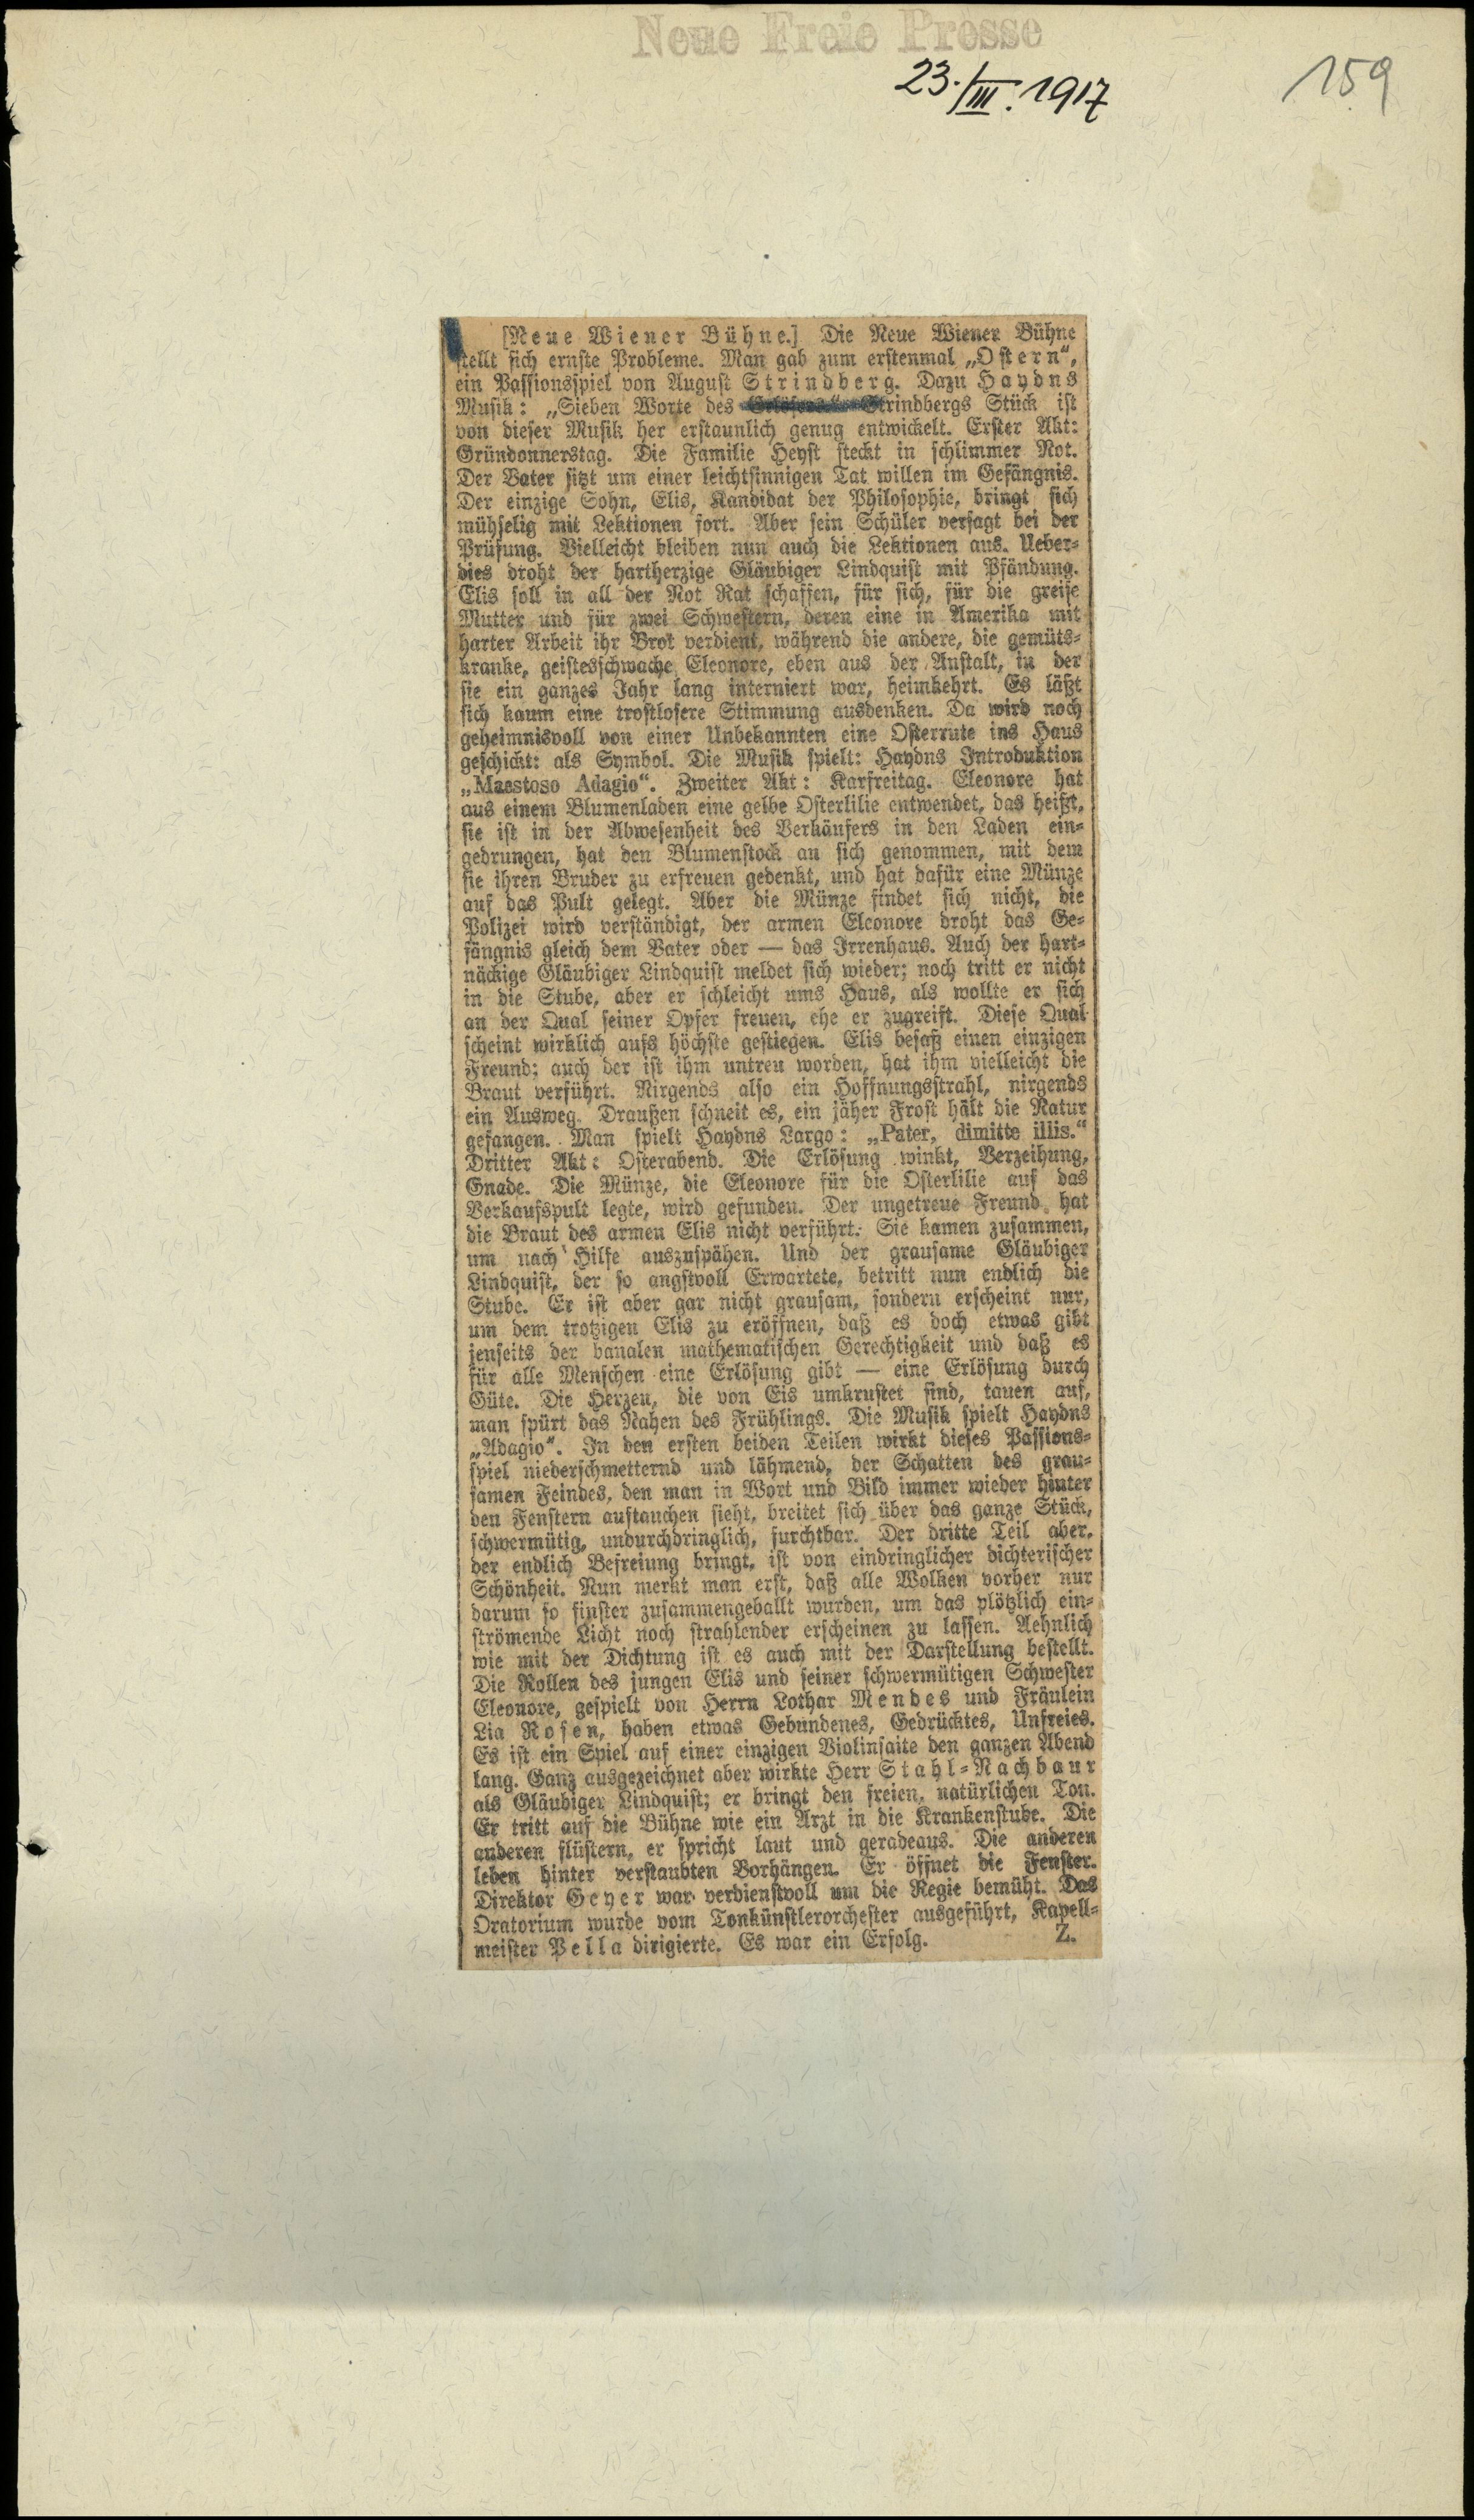 Neue Freie Presse
23./III. 1917
159
[Neue Wiener Bühne.] Die Neue Wiener Bühne
stellt sich ernste Probleme. Man gab zum erstenmal „Ostern“,
ein Passionsspiel von August Strindberg. Dazu Haydns
Musik: „Sieben Worte des Strindbergs Stück ist
von dieser Musik her erstaunlich genug entwickelt. Erster Akt:
Gründonnerstag. Die Familie Heyst steckt in schlimmer Not.
Der Vater sitzt um einer leichtsinnigen Tat willen im Gefängnis.
Der einzige Sohn, Elis, Kandidat der Philosophie, bringt sich
mühselig mit Lektionen fort. Aber sein Schüler versagt bei der
Prüfung. Vielleicht bleiben nun auch die Lektionen aus. Ueber-
dies droht der hartherzige Gläubiger Lindquist mit Pfändung.
Elis soll in all der Not Rat schaffen, für sich, für die greise
Mutter und für zwei Schwestern, deren eine in Amerika mit
harter Arbeit ihr Brot verdient, während die andere, die gemüts-
kranke, geistesschwache Eleonore, eben aus der Anstalt, in der
sie ein ganzes Jahr lang interniert war, heimkehrt. Es läßt
sich kaum eine trostlosere Stimmung ausdenken. Da wird noch
geheimnisvoll von einer Unbekannten eine Osterrute ins Haus
geschickt: als Symbol. Die Musik spielt: Haydns Introduktion
„Maestoso Adagio“. Zweiter Akt: Karfreitag. Eleonore hat
aus einem Blumenladen eine gelbe Osterlilie entwendet, das heißt,
sie ist in der Abwesenheit des Verkäufers in den Laden ein-
gedrungen, hat den Blumenstock an sich genommen, mit dem
sie ihren Bruder zu erfreuen gedenkt, und hat dafür eine Münze
auf das Pult gelegt. Aber die Münze findet sich nicht, die
Polizei wird verständigt, der armen Eleonore droht das Ge-
fängnis gleich dem Vater oder — das Irrenhaus. Auch der hart-
näckige Gläubiger Lindquist meldet sich wieder; noch tritt er nicht
in die Stube, aber er schleicht ums Haus, als wollte er sich
an der Qual seiner Opfer freuen, ehe er zugreift. Diese Qual
scheint wirklich aufs höchste gestiegen. Elis besaß einen einzigen
Freund; auch der ist ihm untreu worden, hat ihm vielleicht die
Braut verführt. Nirgends also ein Hoffnungsstrahl, nirgends
ein Ausweg. Draußen schneit es, ein jäher Frost hält die Natur
gefangen. Man spielt Haydns Largo: „Pater, dimitte illis.“
Dritter Akt: Osterabend. Die Erlösung winkt, Verzeihung,
Gnade. Die Münze, die Eleonore für die Osterlilie auf das
Verkaufspult legte, wird gefunden. Der ungetreue Freund hat
die Braut des armen Elis nicht verführt. Sie kamen zusammen,
um nach Hilfe auszuspähen. Und der grausame Gläubiger
Lindquist, der so angstvoll Erwartete, betritt nun endlich die
Stube. Er ist aber gar nicht grausam, sondern erscheint nur,
um dem trotzigen Elis zu eröffnen, daß es doch etwas gibt
jenseits der banalen mathematischen Gerechtigkeit und daß es
für alle Menschen eine Erlösung gibt — eine Erlösung durch
Güte. Die Herzen, die von Eis umkrustet sind, tauen auf,
man spürt das Nahen des Frühlings. Die Musik spielt Haydns
„Adagio“. In den ersten beiden Teilen wirkt dieses Passions-
spiel niederschmetternd und lähmend, der Schatten des grau-
samen Feindes, den man in Wort und Bild immer wieder hinter
den Fenstern auftauchen sieht, breitet sich über das ganze Stück,
schwermütig, undurchdringlich, furchtbar. Der dritte Teil aber,
der endlich Befreiung bringt, ist von eindringlicher dichterischer
Schönheit. Nun merkt man erst, daß alle Wolken vorher nur
darum so finster zusammengeballt wurden, um das plötzlich ein-
strömende Licht noch strahlender erscheinen zu lassen. Aehnlich
wie mit der Dichtung ist es auch mit der Darstellung bestellt.
Die Rollen des jungen Elis und seiner schwermütigen Schwester
Eleonore, gespielt von Herrn Lothar Mendes und Fräulein
Lia Rosen, haben etwas Gebundenes, Gedrücktes, Unfreies.
Es ist ein Spiel auf einer einzigen Violinsaite den ganzen Abend
lang. Ganz ausgezeichnet aber wirkte Herr Stahl-Nachbaur
als Gläubiger Lindquist; er bringt den freien, natürlichen Ton.
Er tritt auf die Bühne wie ein Arzt in die Krankenstube. Die
anderen flüstern, er spricht laut und geradeaus. Die anderen
leben hinter verstaubten Vorhängen. Er öffnet die Fenster.
Direktor Geyer war verdienstvoll um die Regie bemüht. Das
Oratorium wurde vom Tonkünstlerorchester ausgeführt, Kapell-
meister Pella dirigierte. Es war ein Erfolg. Z.